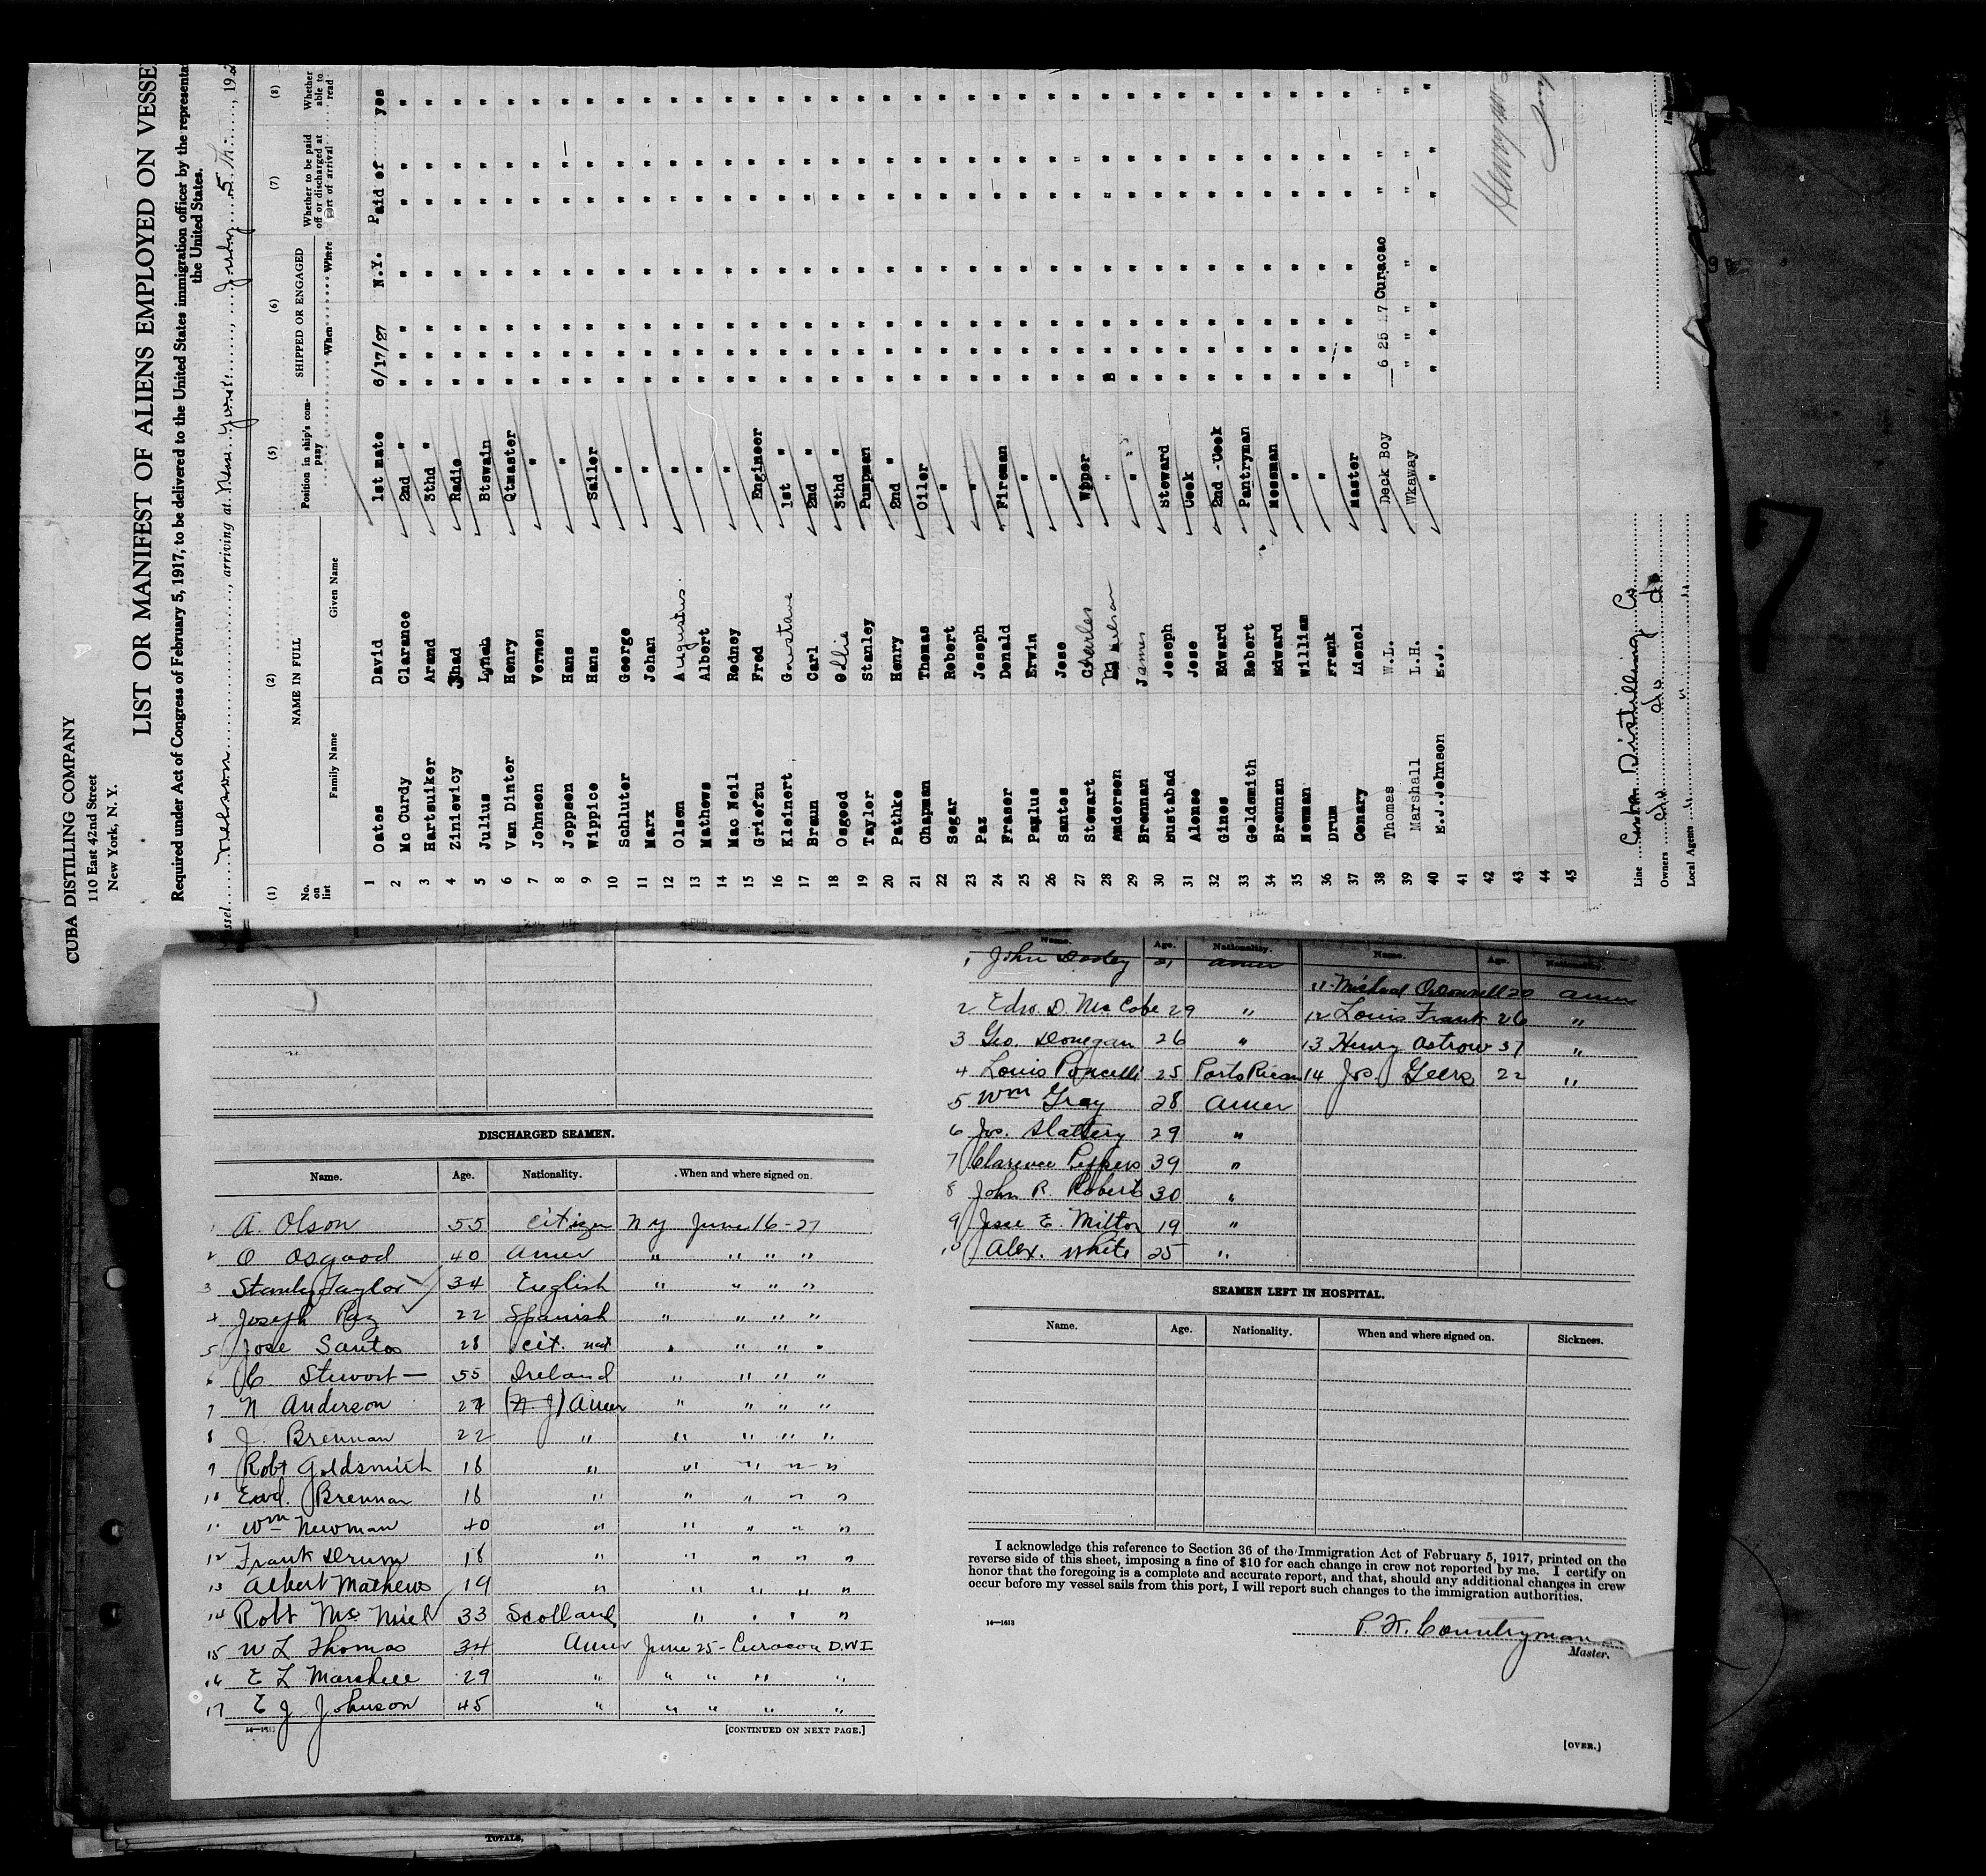 CUBA DISTILLING COMPANY
110 East 42nd Street
New York, N. Y.
LIST OR MANIFEST OF ALIENS EMPLOYED ON VESSE
Required under Act of Congress of February 5, 1917, to be delivered to the United States immigration officer by the representa
the United States.
ssel Nelson, arriving at New York, July 5 Th, 192
(1) (2) (5) (6) (7) (8)
No. on list NAME IN FULL Position in ship's company SHIPPED OR ENGAGED Whether to be paid off or discharged at port of arrival Whether able to read
Family Name Given Name When Where
1 Oates David 1st mate 6/17/27 N.Y. Paid of yes
2 Mc Curdy Clarance 2nd " " " " " " " "
3 Hartsuiker Arand 3thd " " " " " " " "
4 Ziniewicy Jhad Radio " " " " " " "
5 Julius Lynch Btswain " " " " " " "
6 Van Dinter Henry Qtmaster " " " " " " "
7 Johnson Vernon " " " " " " " "
8 Jeppsen Hans " " " " " " " "
9 Wippice Hans Sailor " " " " " " "
10 Schluter George " " " " " " " "
11 Marx Johan " " " " " " " "
12 Olsen Augustius " " " " " " " "
13 Mathews Albert " " " " " " " "
14 Mac Neil Rodney " " " " " " " "
15 Griefzu Fred Engineer " " " " " " "
16 Kleinert Gustave 1st " " " " " " " "
17 Braun Carl 2nd " " " " " " " "
18 Osgood Ollie 3thd " " " " " " " "
19 Taylor Stanley Pumpman " " " " " " "
20 Pathke Henry 2nd " " " " " " " "
21 Chapman Thomas Oiler " " " " " " "
22 Segar Robert " " " " " " " "
23 Paz Joseph " " " " " " " "
24 Fraser Donald Fireman " " " " " " "
25 Paplus Erwin " " " " " " " "
26 Santos Jose " " " " " " " "
27 Stewart Charles Wpper " " " " " " "
28 Anderson " " " " " " "
29 Brennan James " " " " " " " "
30 Bustabad Joseph Steward " " " " " " "
31 Alonso Jose Cook " " " " " " "
32 Gines Edward 2nd-Cook " " " " " " "
33 Goldsmith Robert Pantryman " " " " " " "
34 Brennan Edward Mesman " " " " " " "
35 Newman William " " " " " " " "
36 Drum Frank " " " " " " " "
37 Conary Lionel Master " " " " " " "
38 Thomas W.L. Deck Boy 6 25 27 Curacao " " "
39 Marshall L.H. Wkaway " " " " " " "
40 E.J.Johnson E.J. " " " " " " " "
41
42
43
44
45
Line Cuba Distilling Co
Owners do do do
Local Agents " " "
7
DISCHARGED SEAMEN.
Name. Age. Nationality. When and where signed on.
1 A. Olson 55 citizen N Y June 16-27
2 O Osgood 40 Amer " " " "
3 Stanley Taylor 34 English " " " "
4 Joseph Paz 22 Spanish " " " "
5 Jose Santos 28 cit. nat " " " "
6 C Stewart 55 Ireland " " " "
7 N Anderson 27 (N. J) Amer " " " "
8 J. Brennan 22 " " " " "
9 Robt Goldsmith 18 " " " " "
10 Ewd. Brennan 18 " " " " "
11 Wm Newman 40 " " " " "
12 Frank Drum 18 " " " " "
13 Albert Mathews 19 " " " " "
14 Robt Mc Niel 33 Scotland " " " "
15 W L Thomas 34 Amer June 25 - Curacoa D.W.I
16 E L Marshell 29 " " " " "
17 E J Johnson 45 " " " " "
16—1613 [CONTINUED ON NEXT PAGE.]
Name. Age. Nationality. Name. Age. Nationality.
1 John Dooley 21 Amer 11 Michael O'Donnell 20 Amer
2 Edw. D. McCabe 29 " 12 Louis Frank 26 "
3 Geo. Donegan 26 " 13 Henry Ostrow 31 "
4 Louis Poncelli 25 Porto Rican 14 Jos. Geers 22 "
5 Wm Gray 28 Amer
6 Jos. Slattery 29 "
7 Clarence Peppers 39 "
8 John R. Roberts 30 "
9 Jesse E. Milton 19 "
10 Alex. White 25 "
SEAMEN LEFT IN HOSPITAL.
Name. Age. Nationality. When and where signed on. Sickness.
I acknowledge this reference to Section 36 of the Immigration Act of February 5, 1917, printed on the
reverse side of this sheet, imposing a fine of $10 for each change in crew not reported by me. I certify on
honor that the foregoing is a complete and accurate report, and that, should any additional changes in crew
occur before my vessel sails from this port, I will report such changes to the immigration authorities.
16—1613
P. H. Countryman
Master.
[OVER.]
TOTALS,